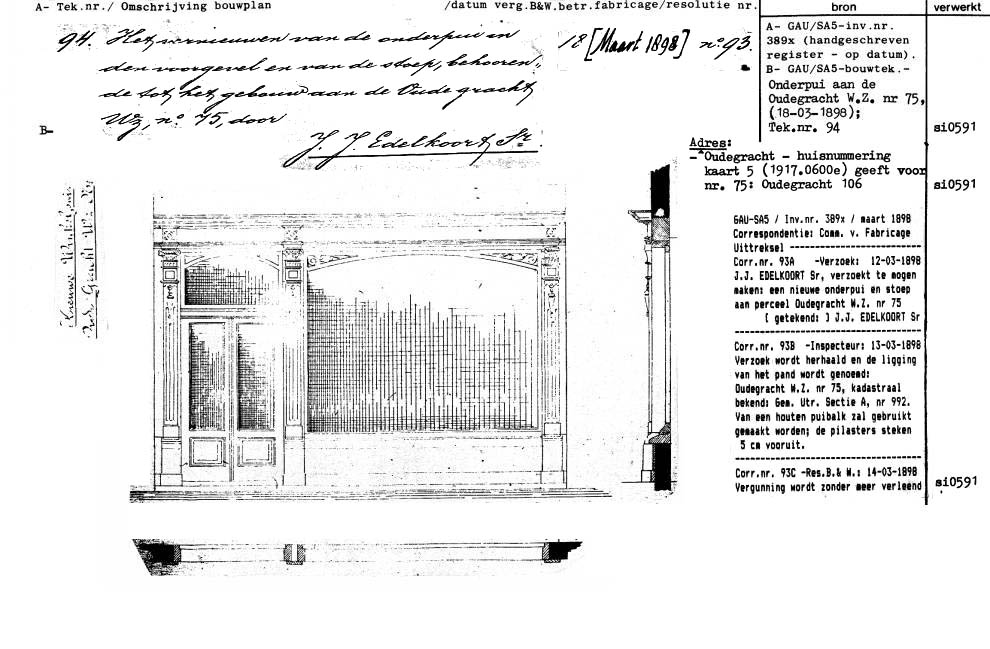 A- Tek.nr./ Omschrijving bouwplan
/datum verg.B&W.betr.fabricage/resolutie nr.
bron
verwerkt
94. Het vernieuwen van de onderpui in
den voorgevel en van de stoep, behooren,
de tot het gebouw aan de Oude gracht
Wz, nº 75, door
J. J. Edelkoort Sr.
18 [Maart 1898] nº 93.
B-
A- GAU/SA5-inv.nr.
389x (handgeschreven
register - op datum).
B- GAU/SA5-bouwtek.-
Onderpui aan de
Oudegracht W.Z. nr 75,
(18-03-1898);
Tek.nr. 94
si0591
Adres:
- Oudegracht - huisnummering
kaart 5 (1917.0600e) geeft voor
nr. 75: Oudegracht 106
si0591
GAU-SA5 / Inv.nr. 389x / maart 1898
Correspondentie: Comm. v. Fabricage
Uittreksel
Corr.nr. 93A -Verzoek: 12-03-1898
J.J. EDELKOORT Sr, verzoekt te mogen
maken: een nieuwe onderpui en stoep
aan perceel Oudegracht W.Z. nr 75
( getekend: ) J.J. EDELKOORT Sr
Corr.nr. 93B -Inspecteur: 13-03-1898
Verzoek wordt herhaald en de ligging
van het pand wordt genoemd:
Oudegracht W.Z. nr 75, kadastraal
bekend: Gem. Utr. Sectie A, nr 992.
Van een houten puibalk zal gebruikt
gemaakt worden; de pilasters steken
5 cm vooruit.
Corr.nr. 93C -Res.B.& W.: 14-03-1898
Vergunning wordt zonder meer verleend
si0591